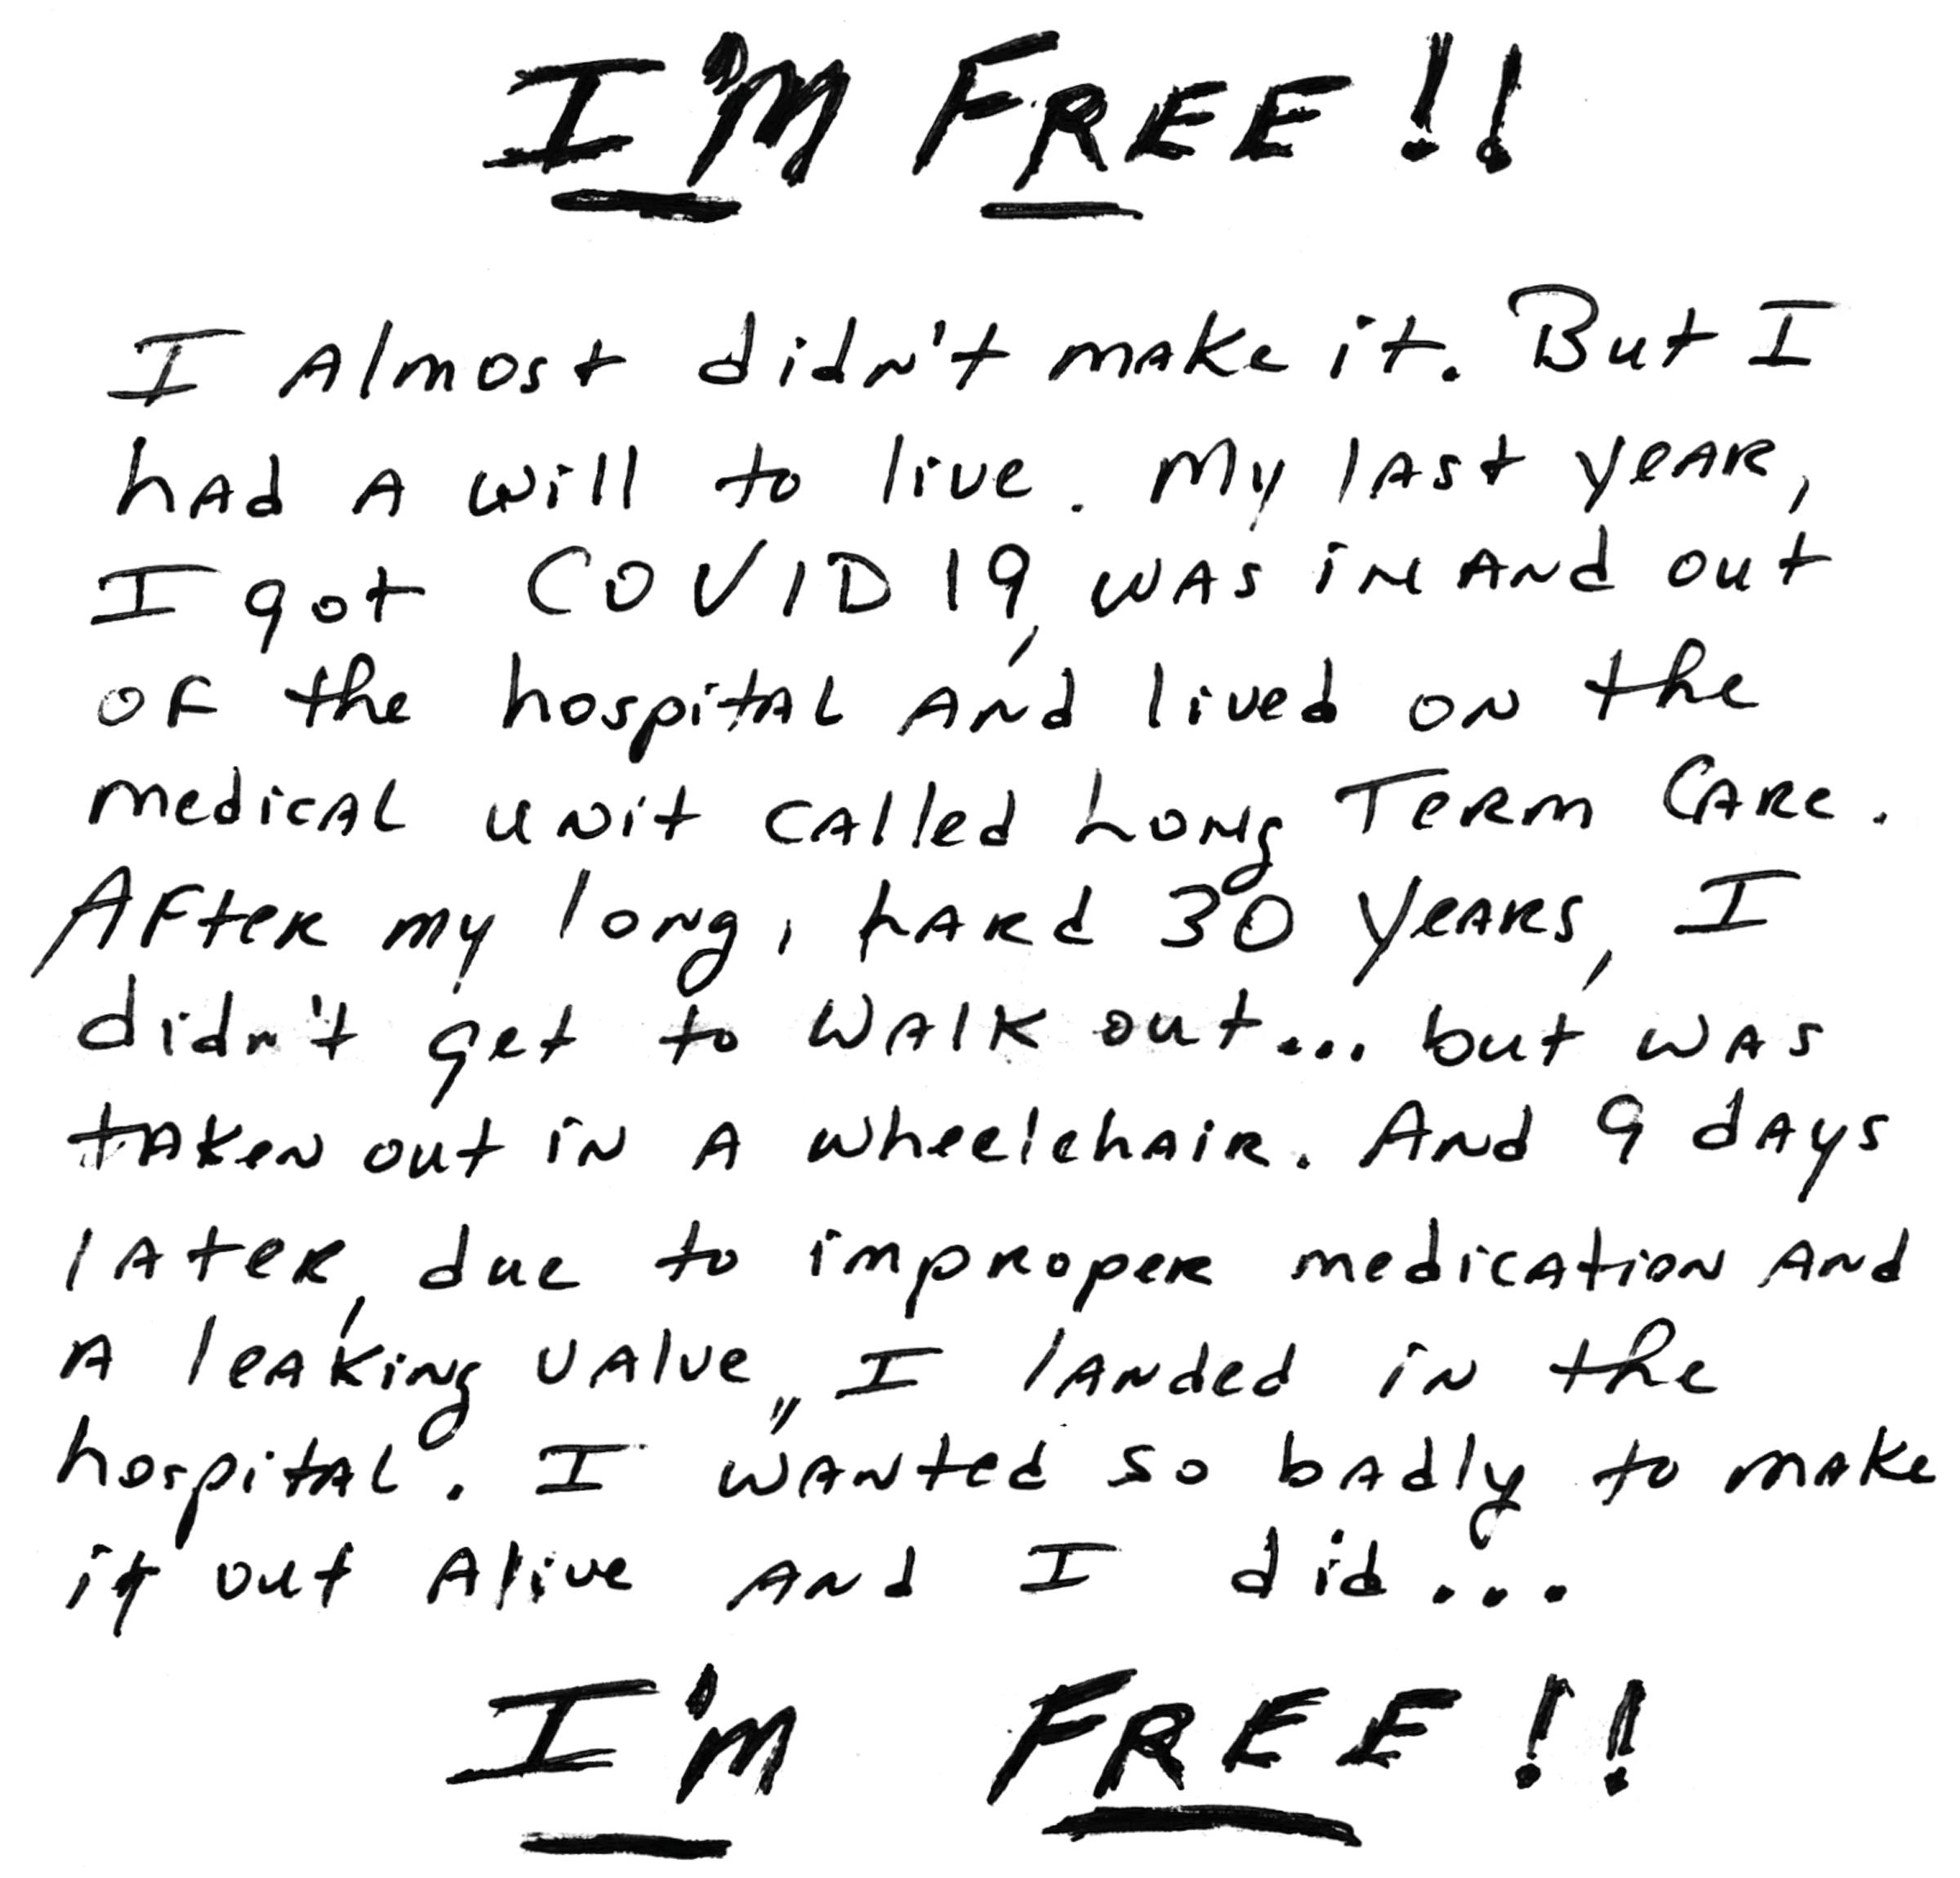 I'M FREE!!
I Almost didn't make it. But I
had a will to live. My last year,
I got COVID 19, was in and out
of the hospital and lived on the
medical unit called Long Term Care.
After my long, hard 30 years, I
didn't get to walk out... but was
taken out in a wheelchair. And 9 days
later, due to improper medication and
a leaking valve,, I landed in the
hospital. I wanted so badly to make
it out alive and I did...
I'M FREE!!